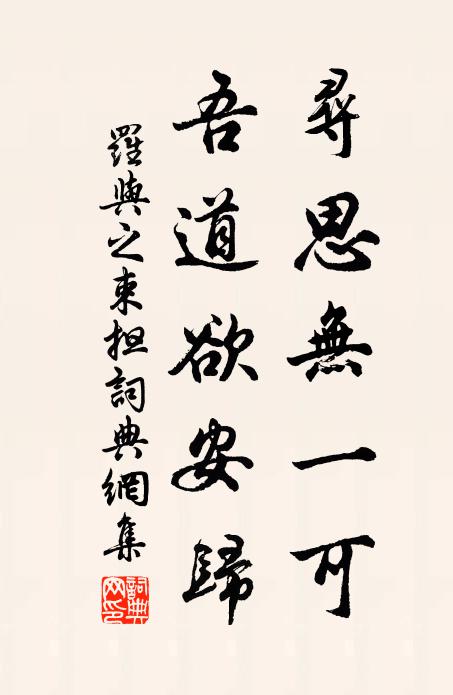 尋思無一可
吾道欲安歸
羅與之束担詞典網集
詞典網印